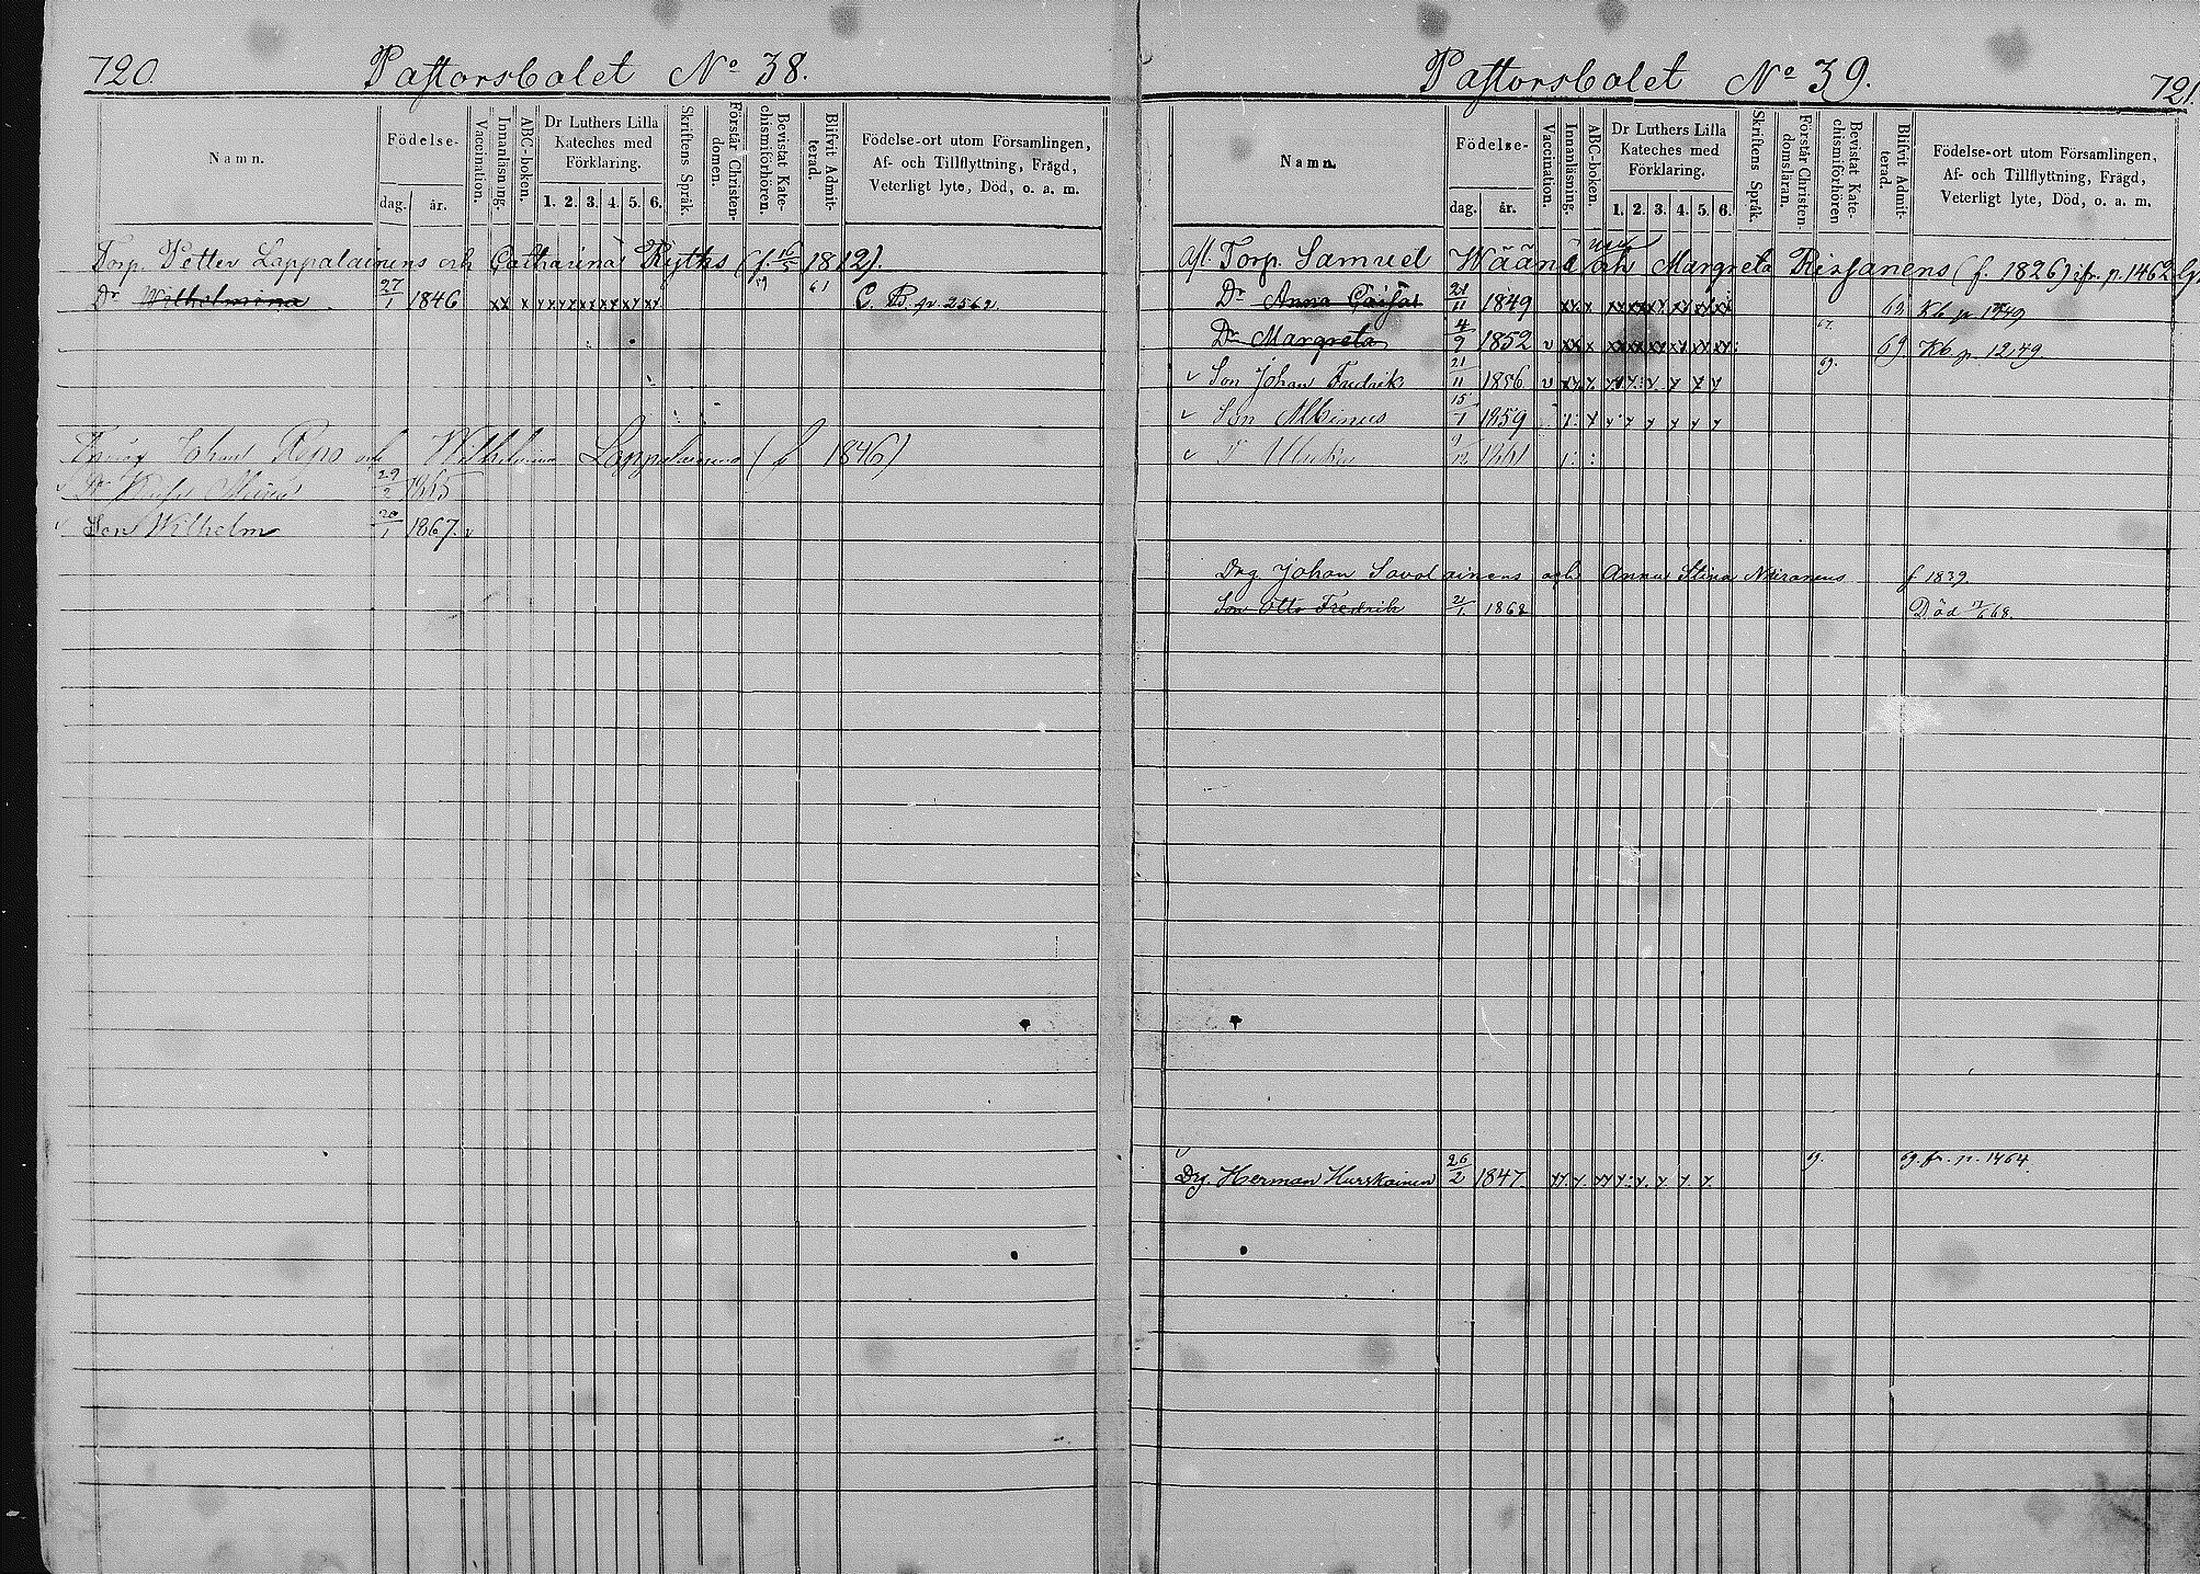 720. Pastorsbolet No 38.
Namn.
Födelse-
dag.
år.
Vaccination.
Innanläsning.
ABC-boken.
Dr Luthers Lilla
Kateches med
Förklaring.
1. 2. 3. 4. 5. 6.
Skriftens Språk.
Förstår Christen-
domen.
Bevistat Kate-
chismiförhören.
Blifvit Admit-
terad.
Födelse-ort utom Församlingen,
Af- och Tillflyttning, Frägd,
Veterligt lyte, Död, o. a. m.
Torp. Petter Lappalainens och Catharina Ryths (f. 16/5 1812).
Dr Wilhelmina 27/1 1846 xx x xx xx xx xx xx xx 61 C. B. p. 2562.
Johan Repo och Wilhelmina Lappalainens (f 1846)
29/2 1865
Son Wilhelm 20/1 1867. v
Pastorsbolet No 39. 721.
Namn.
Födelse-
dag.
år.
Vaccination.
Innanläsning.
ABC-boken.
Dr Luthers Lilla
Kateches med
Förklaring.
1. 2. 3. 4. 5. 6.
Skriftens Språk.
Förstår Christen-
domsläran.
Bevistat Kate-
chismiförhören
Blifvit Admit-
terad.
Födelse-ort utom Församlingen,
Af- och Tillflyttning, Frägd,
Veterligt lyte, Död, o. a. m.
afl. Torp. Samuel Wäänä och Margreta Rissanens (f. 1826) jfr. p. 1462
Dr Anna Caisa 21/11 1849 Kb p. 1249
Dr Margreta 4/9 1852 v 67. 69. Kb p. 1249.
v Son Johan Fredrik 21/11 1856 v 69.
v Son Albinus 15/1 1859
v 1861
Drg. Johan Savolainens och Anna Stina Niiranens f 1839.
Son Otto Fredrik 21/1 1868 Död 68.
v Drg. Herman Hurskainen 26/2 1847. 69. 69. fr. p. 1464